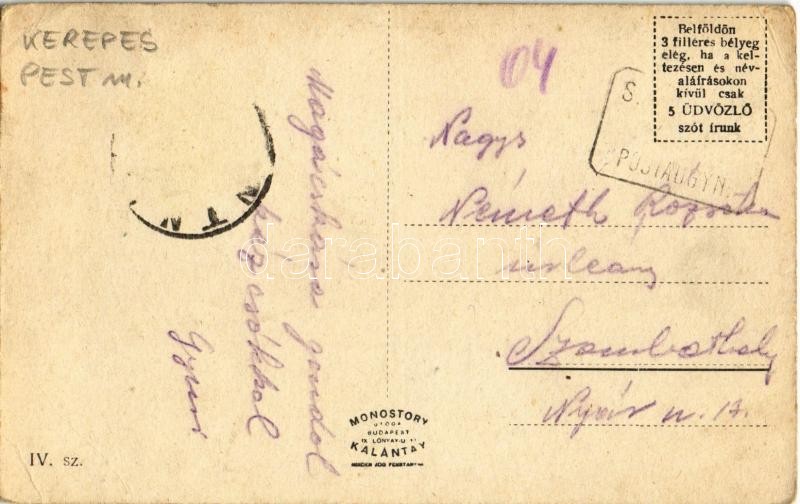 KEREPES
PEST m.
04
Belföldön
3 filléres bélyeg
elég, ha a kel-
tezésen és név-
aláírásokon
kívül csak
5 ÜDVÖZLŐ
szót írunk
S.
POSTAÜGYN.
NTM
Nagys
Németh Rozsika
úrleány
Szombathely
Nyár u. 17.
gondol
csókkal
Gyuri
MONOSTORY
UTÓDA
BUDAPEST
IX. LÓNYAY-U.
KALÁNTAY
MINDEN JOG FENNTARTVA
IV. sz.
darabanth